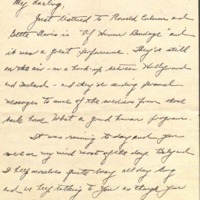 My darling,
Just listened to Ronald Colman and
Bette Davis in "Of Human Bondage" and
it was a great performance. They're still
on the air - on a hook-up between Hollywood
and - and they're sending personal
messages to some of the
back here. What a good human program.
It was raining today and you
were on my mind most of the day.
I kept myself quite busy all day long
and as I kept talking to you as though you